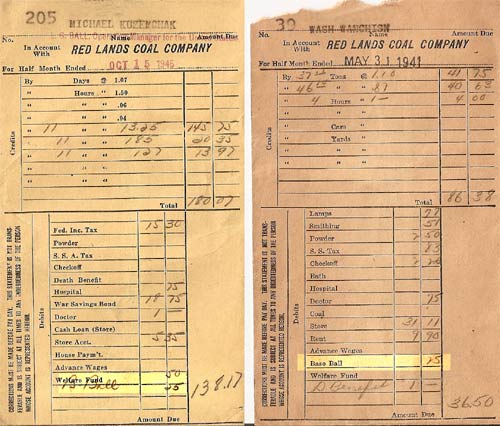 205
MICHAEL KUZEMCHAK
No. Name Amount Due
In Account With RED LANDS COAL COMPANY
For Half Month Ended OCT 15 1945
By Days @ 1.07
" Hours " 1.50
" " " .06
" " " .04
" 11 " " 13.25 145 75
" 11 " " 185 20 35
" 11 " " 127 13 97
Credits
Total 180 07
Fed. Inc. Tax 15 30
Powder
S. S. A. Tax
Checkoff
Death Benefit
Hospital 75
War Savings Bond 18 75
Doctor 1 —
Cash Loan (Store)
Store Acct. 5 35
House Paym't.
Advance Wages
Welfare Fund 50
B Ball 25
138.17
Debits
Amount Due
CORRECTIONS MUST BE MADE BEFORE PAY DAY. THIS STATEMENT IS NOT TRANSFERABLE AND IS SUBJECT AT ALL TIMES TO ANY INDEBTEDNESS OF THE PERSON WHOSE ACCOUNT IS REPRESENTED HEREON.
39
WASH WANCHISN
No. Name Amount Due
In Account With RED LANDS COAL COMPANY
For Half Month Ended MAY 31 1941
By Tons @ 1.10 41 75
" " " 87 40 63
" 4 Hours " 1— 4 00
" Cars "
" Yards "
Credits
Total 86 38
Lamps 78
Smithing 57
Powder 2 50
S. S. Tax 83
Checkoff
Bath
Hospital
Doctor 75
Coal
Store 31 11
Rent 9 90
Advance Wages
Base Ball 15
Welfare Fund
D Benefit 1 —
36.50
Debits
Amount Due
CORRECTIONS MUST BE MADE BEFORE PAY DAY. THIS STATEMENT IS NOT TRANSFERABLE AND IS SUBJECT AT ALL TIMES TO ANY INDEBTEDNESS OF THE PERSON WHOSE ACCOUNT IS REPRESENTED HEREON.